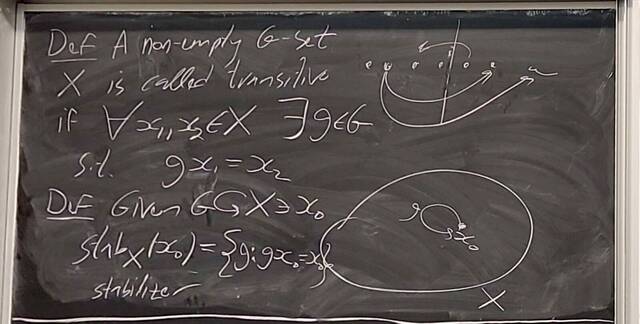 Def A non-empty G-set
X is called transitive
if ∀ x₁, x₂ ∈ X ∃ g ∈ G
s.t. gx₁ = x₂
Def Given G ↻ X ∋ x₀
stab_X(x₀) = {g : gx₀ = x₀}
stabilizer
g
x₀
X